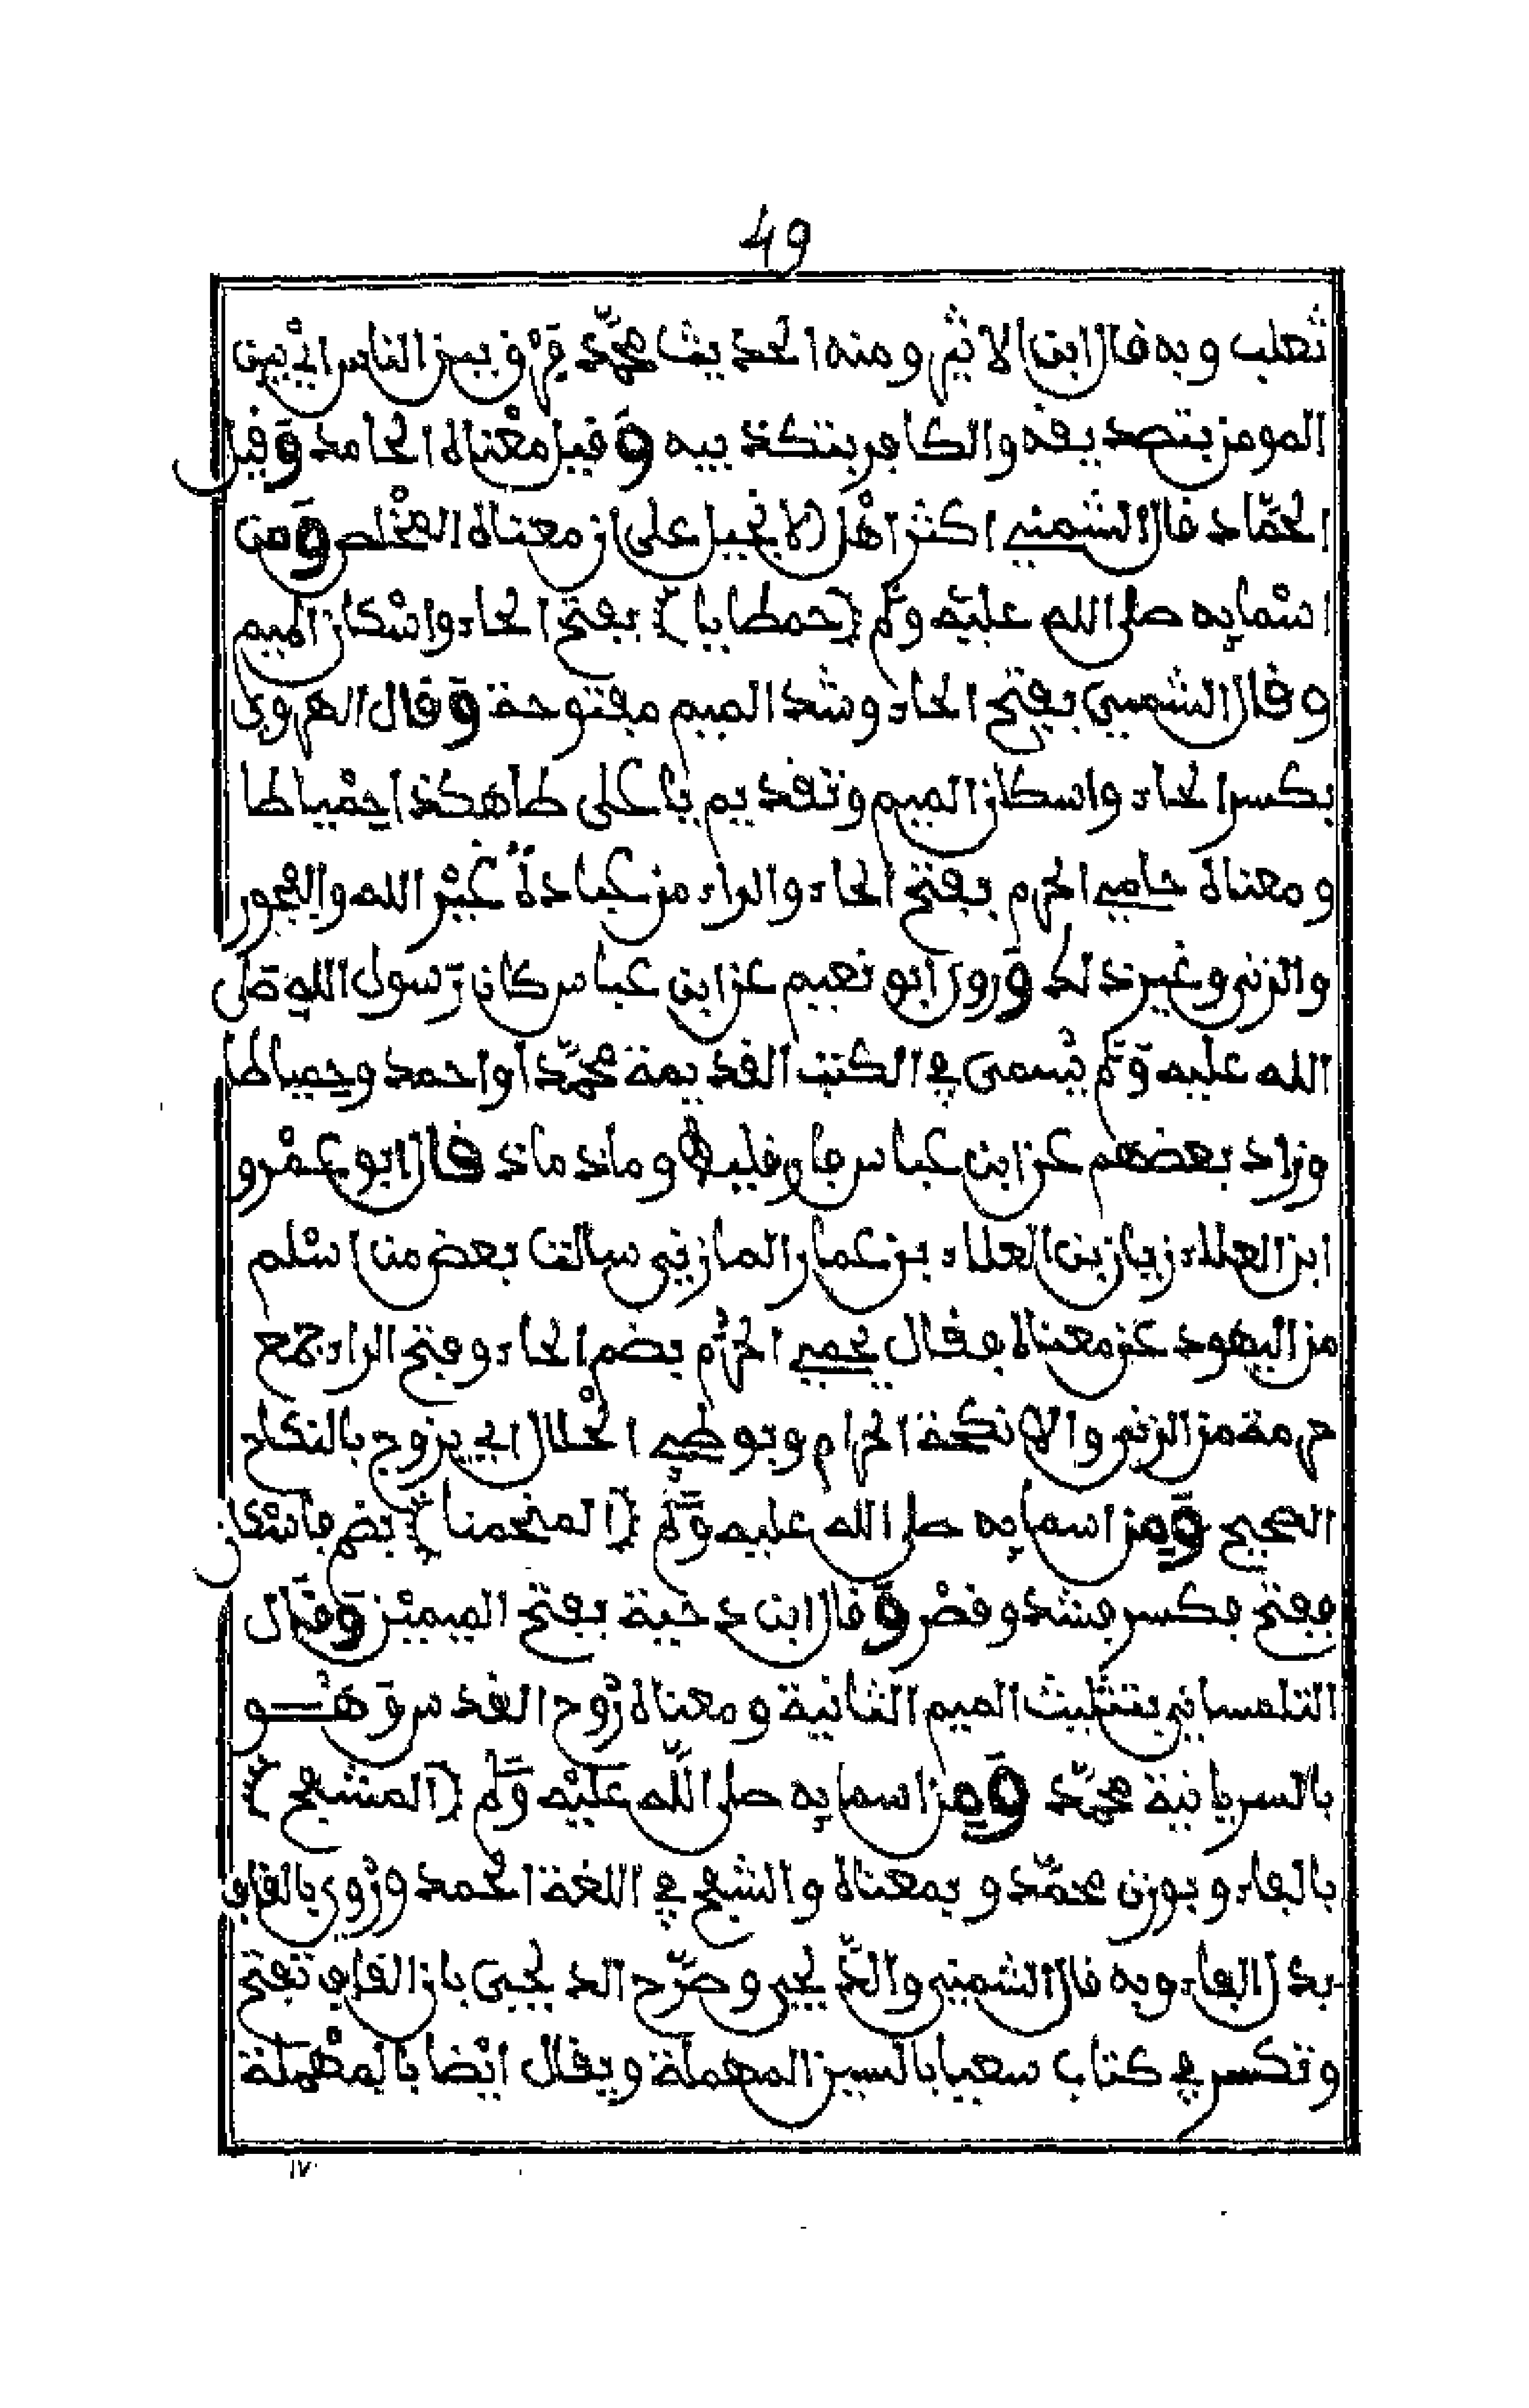 49
ثعلب وبه قال ابن الاثير ومنه الحديث محمّد فرْق بين الناس اي بين
المومن بتصديقه والكافر بتكذيبه وَقيل معْناه الحامد وَقيل
الحمّاد قال الشمني اكثر اهْل الانجيل على ان معناه المخْلص وَمن
اسْمايه صلى الله عليْه وسلم (حمطايا) بفتح الحاء واسْكان الميم
وقال الشمني بفتح الحاء وشد الميم مفتوحة وَقال الهروي
بكسر الحاء واسكان الميم وتقديم يا على طا هكذا حِمْياطا
ومعناه حامي الحرم بفتح الحاء والراء من عبادة غيْر الله والفجور
والزنى وغير ذلك وَروى أبو نعيم عن ابن عباس كان رَسول الله صَلى
الله عليه وَسلم يُسمى في الكتب القديمة محمّدا واحمد وحمياطا
وزاد بعضهم عن ابن عباس فارقليطا وماذ ماذ قال ابو عمْرو
ابن العلاء زبان بن العلاء بن عمار المازني سالت بعض من اسْلم
من اليهود عن معناه فقال يحمي الحرُم بضم الحاء وفتح الراء جمْع
حرمة من الزنى والانكحة الحرام وبوطي الحْلال اي يزوج بالنكاح
الصحيح وَمن اسمايه صلى الله عليه وَسلم (المنحمنا) بضم فاسْكان
ففتح فكسر فشد وقصْر وَقال ابن دحْية بفتح الميميْن وَقَال
التلمساني بتثليث الميم الثانية ومعناه رُوح القدس وَهُــو
بالسريانية محمّد وَمن اسمايه صلى اللّه عليْه وَسلم (المشفح)
بالفاء وبوزن محمّد وبمعناه والشفح في اللغة الحمد ورُوي بالقاف
بدل الفاء وبه قال الشمني والدّلجي وصرّح الدلجي بان القاف تفتح
وتكسر في كتاب سعيا بالسين المهملة ويقال ايْضا بالمعْجمة
١٧